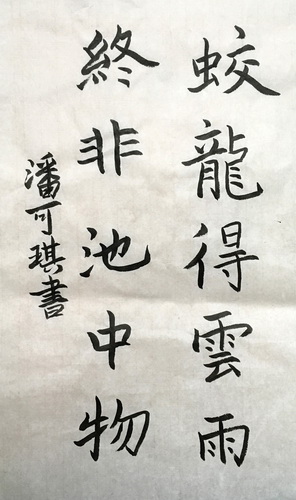 蛟龍得雲雨
終非池中物
潘可琪書